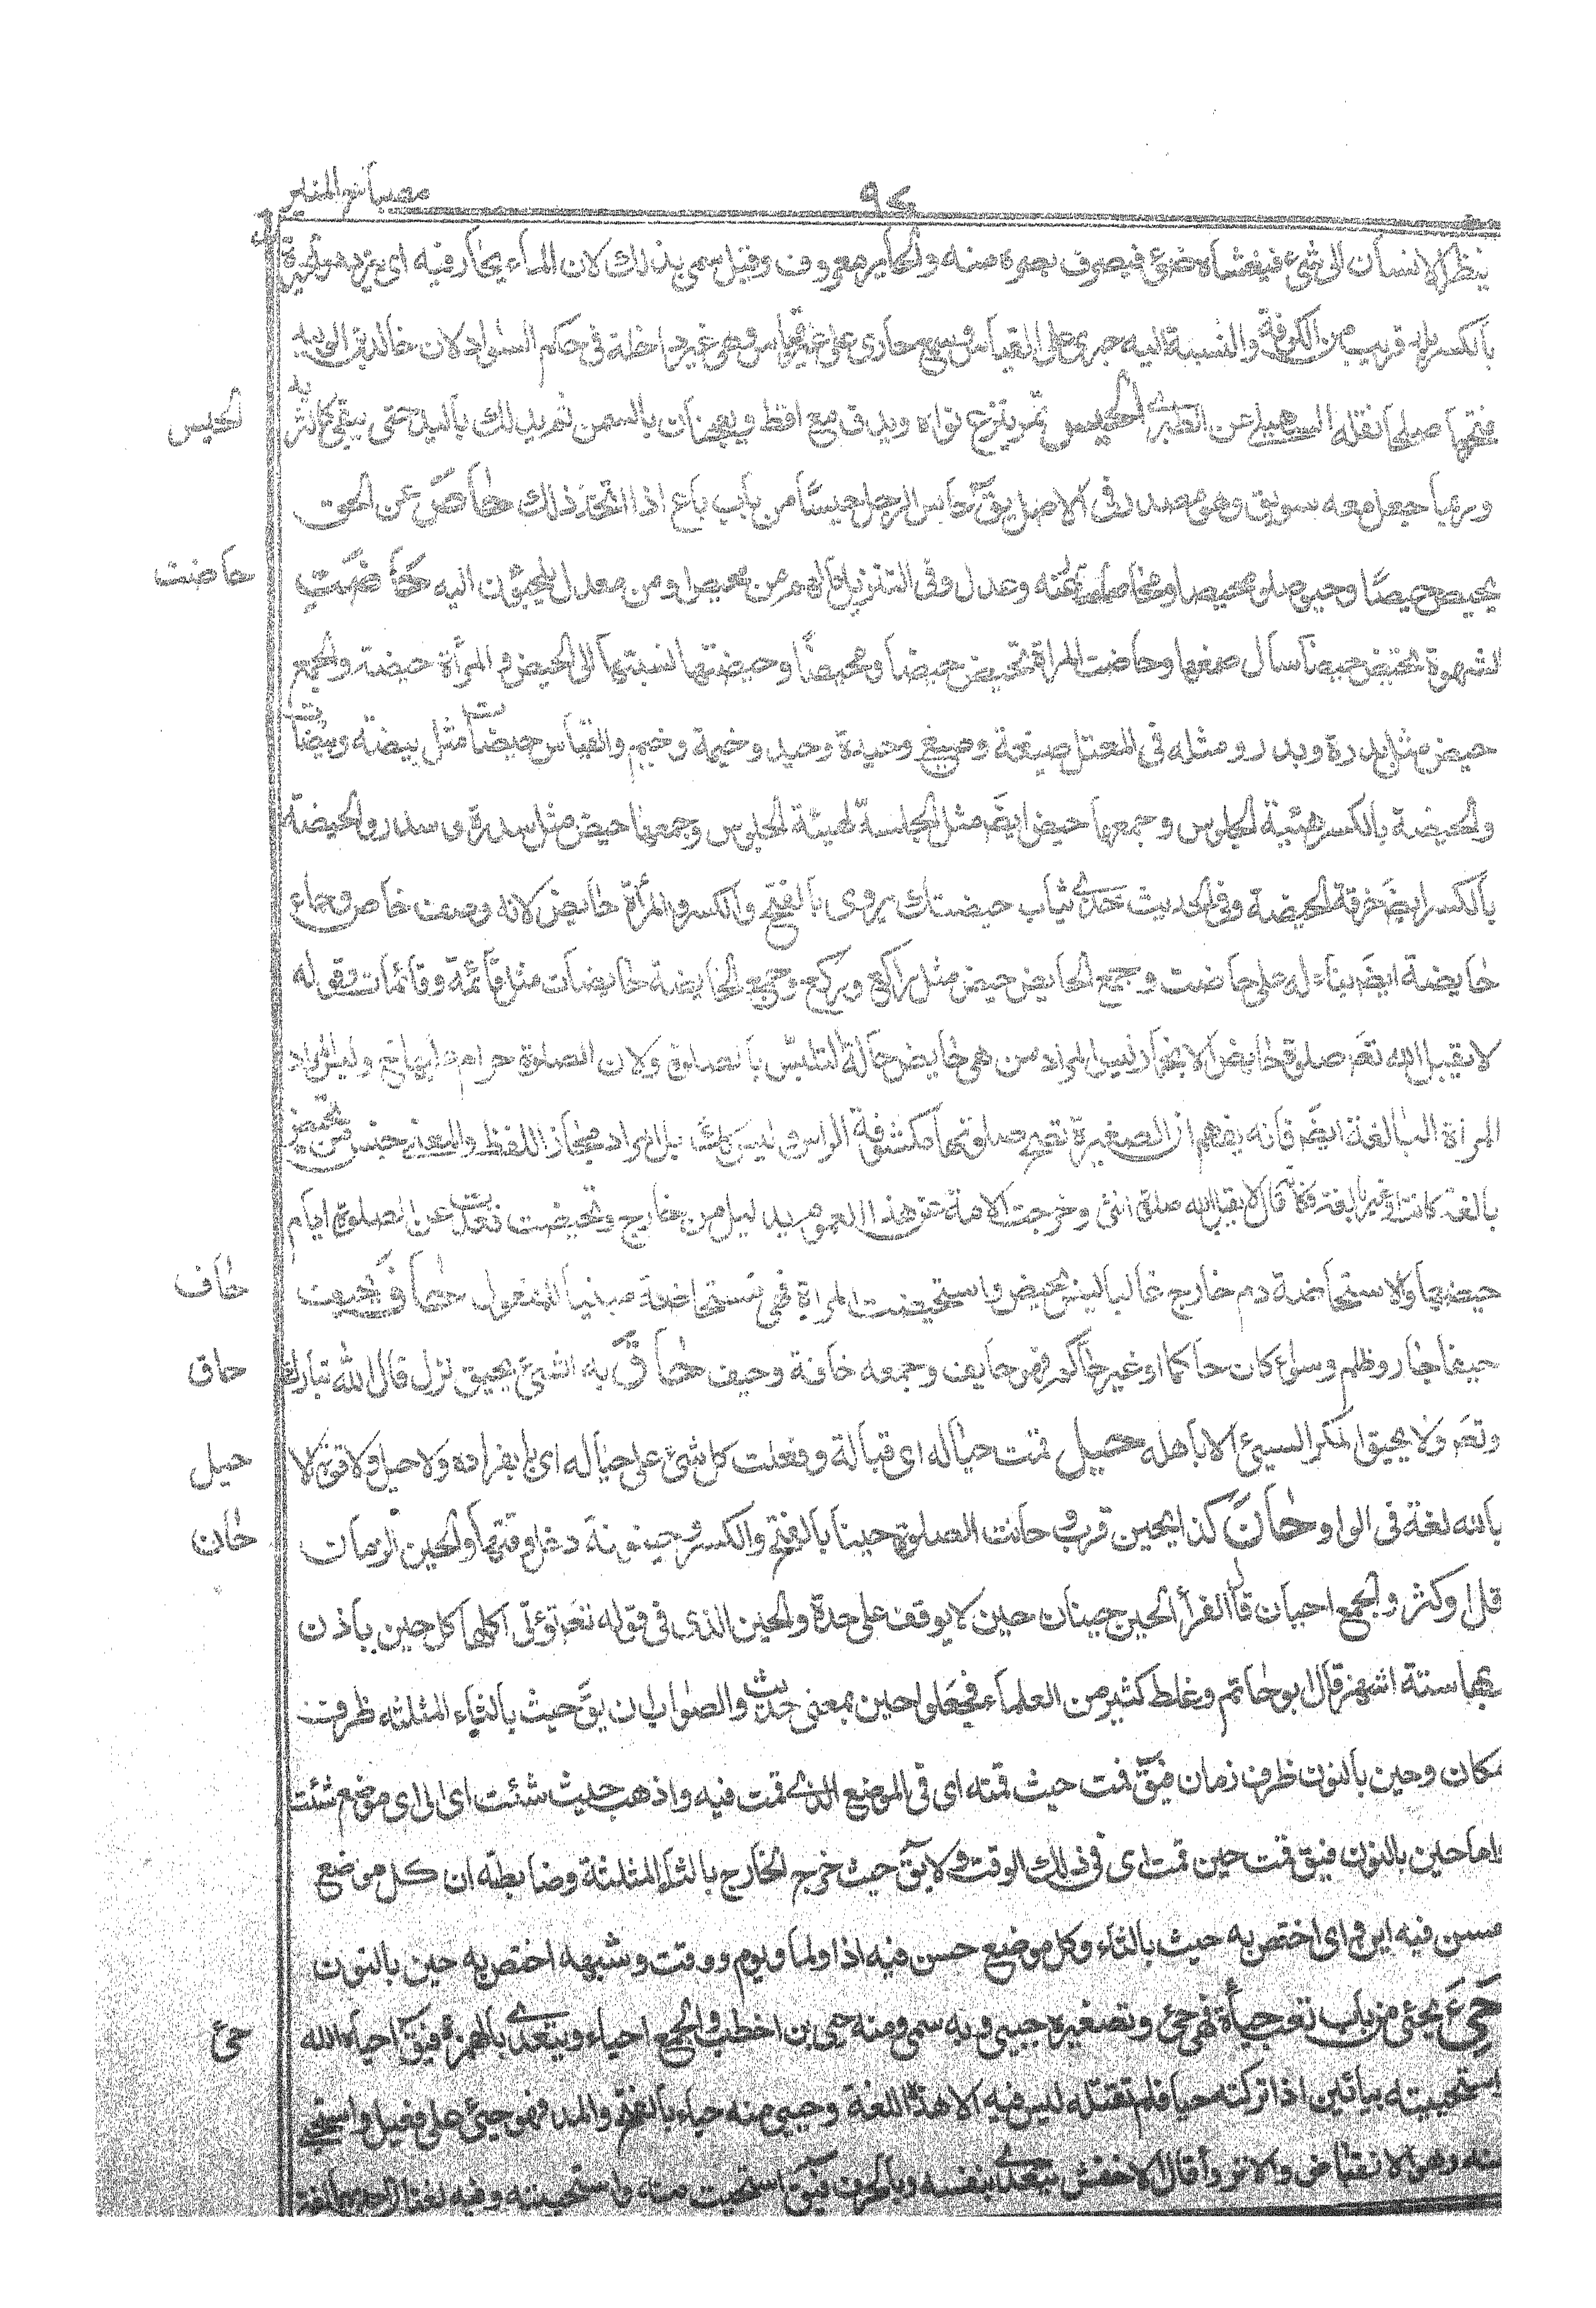 مصباح المنير
٩٤
ينظر الانسان الى شئ فيغشاه ضوئ فيصرف بصره منه والحاير معروف وقيل سمى بذلك لان الماء يحار فيه اى يتردد
بالكسر بلد قريب من الكوفة والنسبة اليه حيرى على القياس وسمع حارى على غير قياس وهى غير داخلة فى حكم السواد لان خالد بن الوليد
فتحها صلحا نقله السهيلى عن الطبرى الحيس تمر ينزع نواه ويدق مع اقط ويعجنان بالسمن ثم يدلك باليد حتى يبقى كالثريد
الحيس
وربما جعل معه سويق وهو مصدر فى الاصل يق حاس الرجل حيسا من باب باع اذا اتخذ ذلك حاص عن الحق
يحيص حيصا وحيوصا ومحيصا ومحاصا حاد عنه وعدل وفى التنزيل مالهم من محيص اى من معدل يلجئون اليه حاضت
حاضت
الشهوة تحيض حيضا سال صمغها وحاضت المراة تحيض حيضا ومحيضا وحيضتها نسبتها الى الحيض والمرأة حيضة والجمع
حيض مثل بدرة وبدر ومثله فى المعتل ضيعة وضيع وحيدة وحيد وخيمة وخيم والقياس حيضات مثل بيضة وبيضات
والحيضة بالكسر هيئة الجلوس وجمعها حيض ايضم مثل الجلسة لهيئة الجلوس وجمعها حيض مثل سدرة وسدر والحيضة
بالكسر ايضم خرقة الحيضة وفى الحديث خذى ثياب حيضتك يروى بالفتح والكسر والمرأة حايض لانه وصف خاص وجاء
حايضة ايضم بناء له على حاضت وجمع الحايض حيض مثل راكع وركع وجمع الحايضة حايضات مثل قائمة وقائمات وقوله
لا يقبل الله تعم صلوة حايض الا بخمار ليس المراد من هى حايض حالة التلبس بالصلوة لان الصلوة حرام عليها ح وليس المراد
المرأة البالغة ايضم فانه يفهم ان الصغيرة تصح صلوتها مكشوفة الراس وليس كك بل المراد مجاز اللفظ والمعنى جنس من تحيض
بالغة كانت او غير بالغة فكانه قال لا يقبل الله صلوة انثى وخرجت الامة عن هذا العموم بدليل من خارج وتحيضت قعدت عن الصلوة ايام
حيضها والاستحاضة دم خارج غالب ليس بحيض واستحيضت المراة فهى مستحاضة مبنيا للمفعول حاف يحيف
حاف
حيفا جار وظلم وسواء كان حاكما او غير حاكم فهو حايف وجمعه حافة وحيف حاق به الشئ يحيق نزل قال الله تبارك
حاق
وتعم ولا يحيق المكر السيئ الا باهله حيل قمت حياله اى قبالة وفعلت كل شئ على حياله اى بانفراده ولا حيل ولا قوة الا
حيل
بالله لغة فى الواو حان كذا يحين قرب وحانت الصلوة حينا بالفتح والكسر وحينونة دخل وقتها والحين الزمان
حان
قل او كثر والجمع احيان قال الفرأ الحين حينان حين لا يوقف على حدة والحين الذى فى قوله تعم تؤتى اكلها كل حين باذن
ربها ستة اشهر قال ابو حاتم وغلط كثير من العلماء فجعلوا حين بمعنى حيث والصواب ان يق حيث بالثاء المثلثة ظرف
مكان وحين بالنون ظرف زمان فيق قمت حيث قمت اى فى الموضع الذى قمت فيه واذهب حيث شئت اى الى اى موضع شئت
واما حين بالنون فيق قمت حين قمت اى فى ذلك الوقت ولا يق حيث خرج الخارج بالثاء المثلثة وضابطه ان كل موضع
حسن فيه اين واى اختص به حيث بالثاء وكل موضع حسن فيه اذا ولما ويوم ووقت وشبهه اختص به حين بالنون
حيى يحيى من باب تعب حيأة فهو حى وتصغيره حيى وبه سمى ومنه حيى بن اخطب والجمع احياء ويتعدى بالهمزة فيق احياه الله
حى
استحييته بيائين اذا تركته حيا فلم تقتله ليس فيه الا هذه اللغة وحيى منه حياء بالفتح والمد فهو حيى على فعيل واستحيى
منه وهو الانقباض والانزوا قال الاخفش يتعدى بنفسه وبالحرف فيق استحييت منه واستحييته وفيه لغتان احديهما لغة